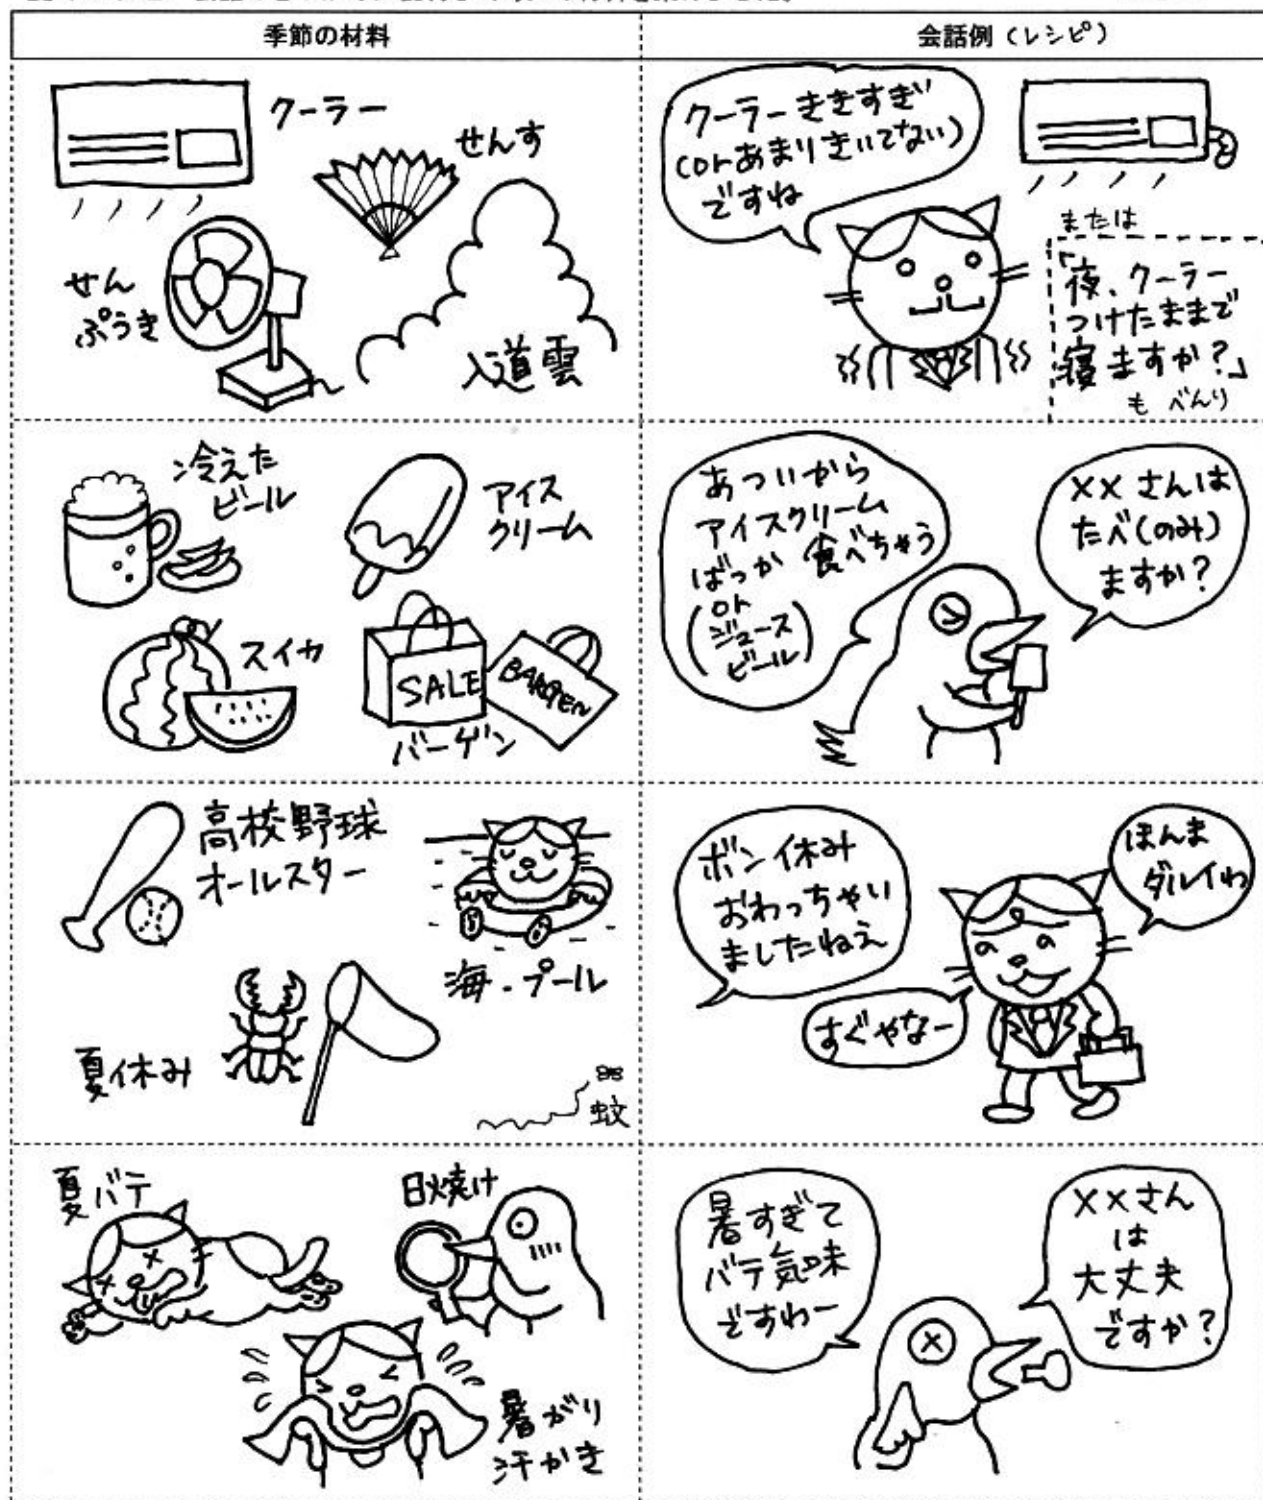 季節の材料
会話例（レシピ）
クーラー
せんす
せん
ぷうき
入道雲
クーラーききすぎ
(orあまりきいてない)
ですね
または
「夜、クーラー
つけたままで
寝ますか？」
も べんり
冷えた
ビール
アイス
クリーム
スイカ
SALE
バーゲン
あついから
アイスクリーム
ばっか 食べちゃう
(or
ジュース
ビール)
××さんは
たべ(のみ)
ますか？
高校野球
オールスター
海・プール
夏休み
蚊
ボン休み
おわっちゃい
ましたねえ
すぐやなー
ほんま
ダルイわ
夏バテ
日焼け
暑がり
汗かき
暑すぎて
バテ気味
ですわー
××さん
は
大丈夫
ですか？